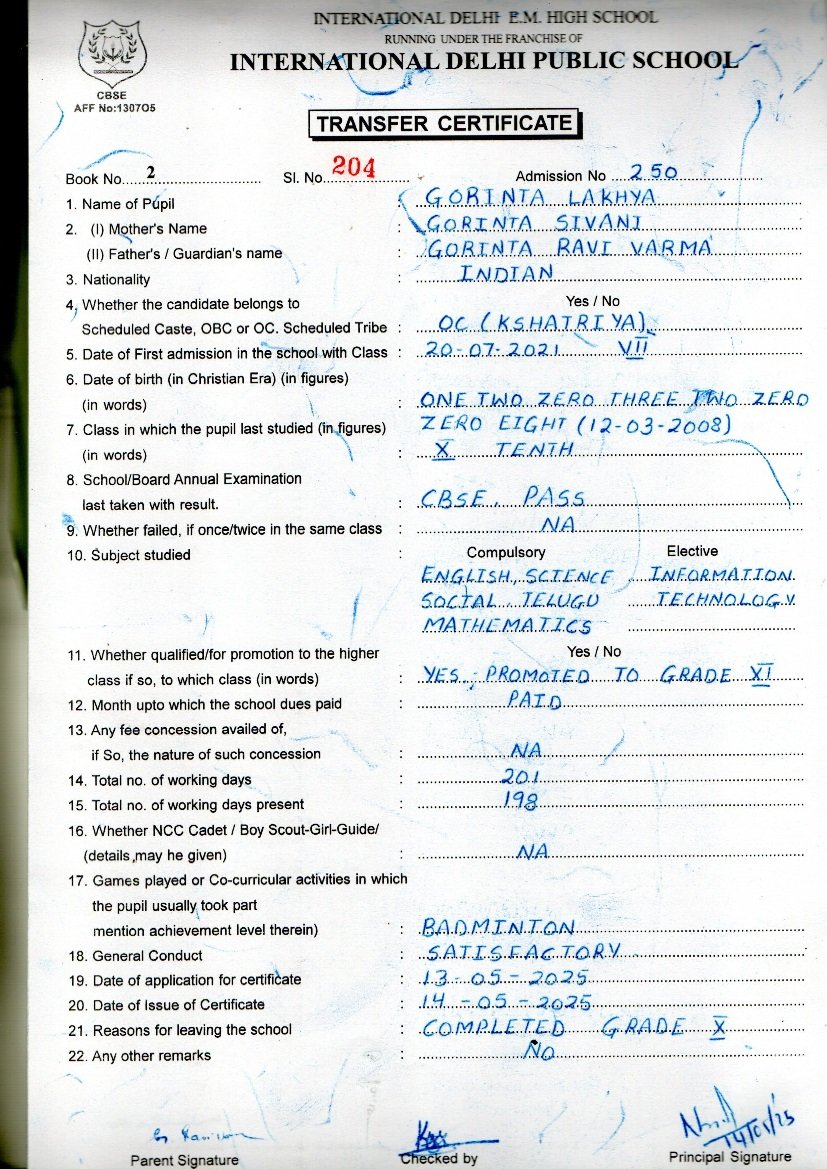 INTERNATIONAL DELHI E.M. HIGH SCHOOL
RUNNING UNDER THE FRANCHISE OF
INTERNATIONAL DELHI PUBLIC SCHOOL
CBSE
AFF No:130705
TRANSFER CERTIFICATE
Book No. 2 Sl. No. 204 Admission No 250
1. Name of Pupil : GORINTA LAKHYA
2. (I) Mother's Name : GORINTA SIVANI
(II) Father's / Guardian's name : GORINTA RAVI VARMA
3. Nationality : INDIAN
4, Whether the candidate belongs to Yes / No
Scheduled Caste, OBC or OC. Scheduled Tribe : OC (KSHATRIYA)
5. Date of First admission in the school with Class : 20-07-2021 VII
6. Date of birth (in Christian Era) (in figures)
(in words) : ONE TWO ZERO THREE TWO ZERO
7. Class in which the pupil last studied (in figures) ZERO EIGHT (12-03-2008)
(in words) : X TENTH
8. School/Board Annual Examination
last taken with result. : CBSE, PASS
9. Whether failed, if once/twice in the same class : NA
10. Subject studied : Compulsory Elective
ENGLISH, SCIENCE INFORMATION
SOCIAL TELUGU TECHNOLOGY
MATHEMATICS
11. Whether qualified/for promotion to the higher Yes / No
class if so, to which class (in words) : YES, PROMOTED TO GRADE XI
12. Month upto which the school dues paid : PAID
13. Any fee concession availed of,
if So, the nature of such concession : NA
14. Total no. of working days : 201
15. Total no. of working days present : 198
16. Whether NCC Cadet / Boy Scout-Girl-Guide/
(details may he given) : NA
17. Games played or Co-curricular activities in which
the pupil usually took part
mention achievement level therein) : BADMINTON
18. General Conduct : SATISFACTORY
19. Date of application for certificate : 13-05-2025
20. Date of Issue of Certificate : 14-05-2025
21. Reasons for leaving the school : COMPLETED GRADE X
22. Any other remarks : NO
Parent Signature Checked by Principal Signature